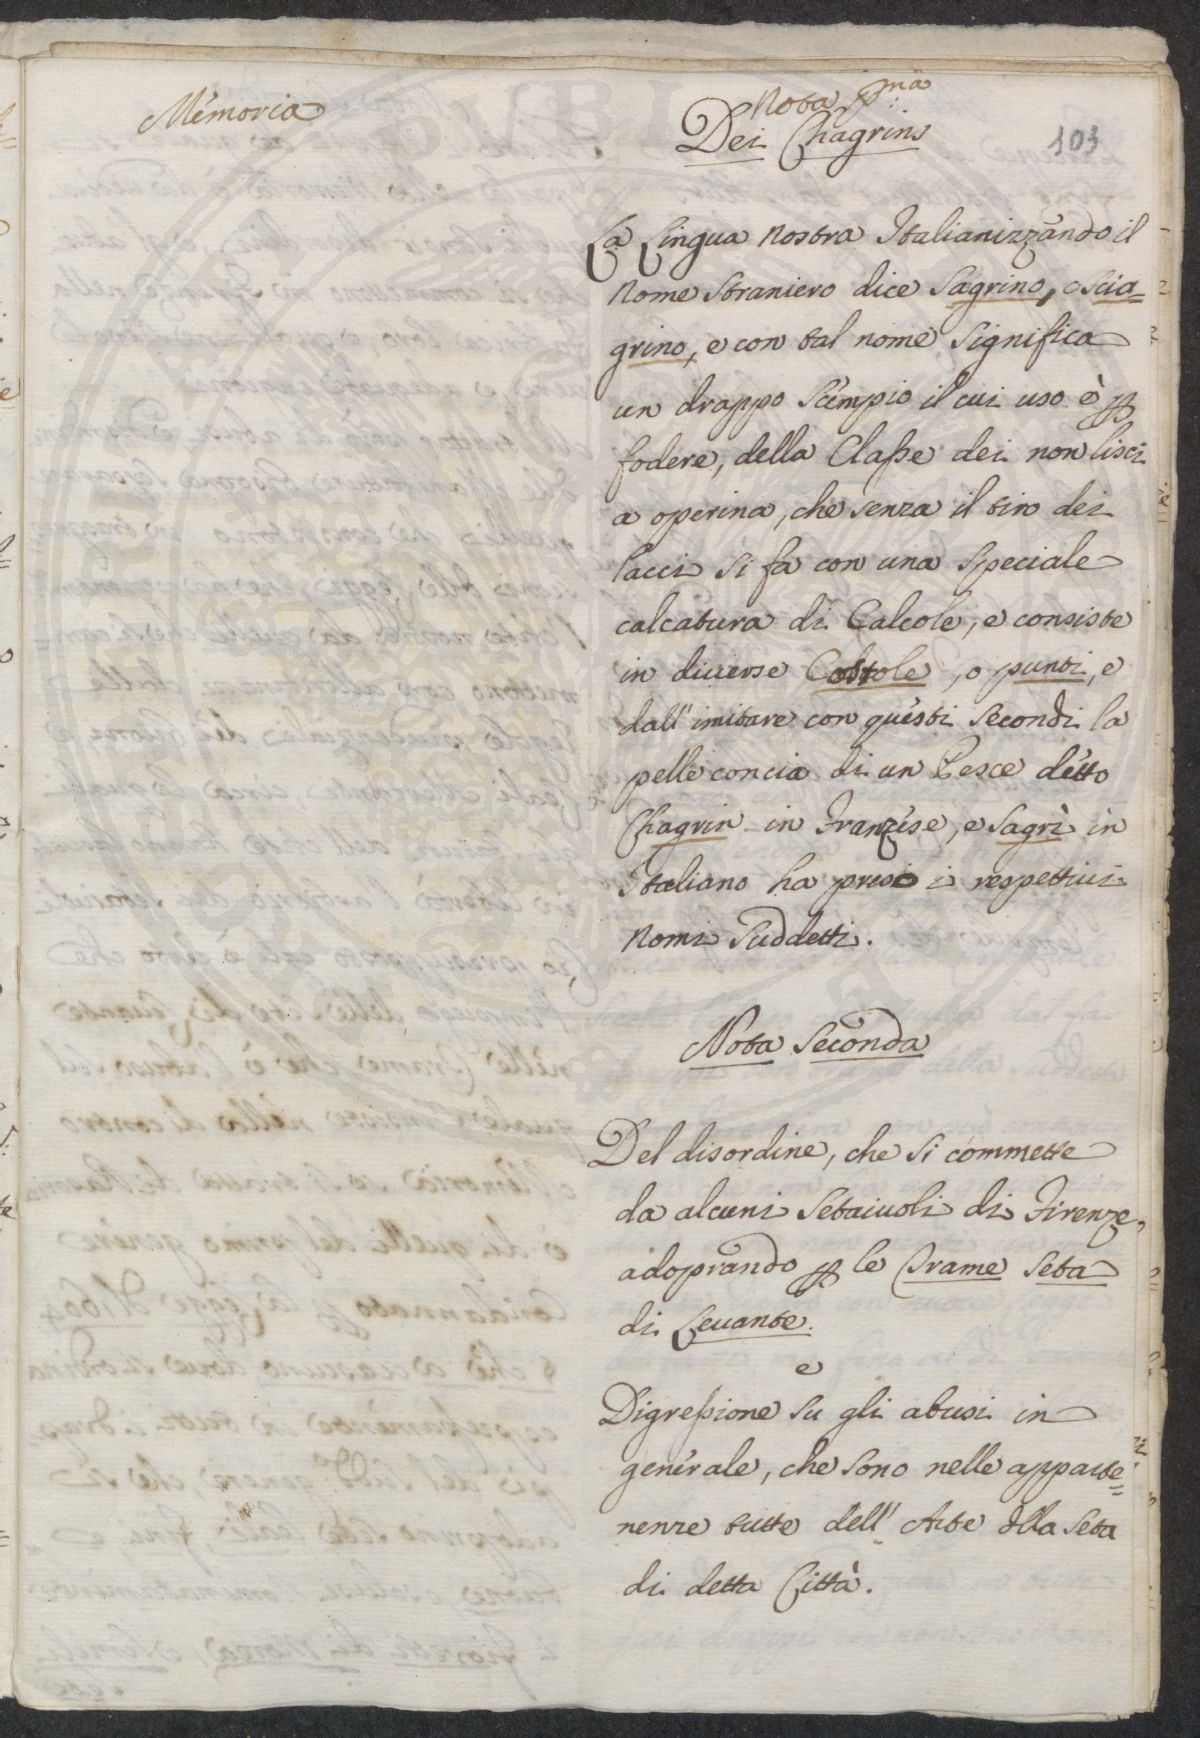 Memoria
Nota pma
Dei Chagrins
103
La Lingua nostra Italianizzando il
nome straniero dice Sagrino, o scia=
grino, e con tal nome significa
un drappo scempio il cui uso è p
fodere, della Classe dei non lisci
a operina, che senza il tiro dei
lacci si fa con una speciale
calcatura di Calcole, e consiste
in diverse Costole, o punti, e
dall' imitare con questi secondi la
pelle concia di un Pesce detto
Chagrin in Franzese, e Sagrì in
Italiano ha preso i respettivi
nomi suddetti.
Nota Seconda
Del disordine, che si commette
da alcuni Setaiuoli di Firenze,
adoprando p le Trame Seta
di Levante.
e
Digressione su gli abusi in
generale, che sono nelle apparte=
nenze tutte dell' Arte dlla Seta
di detta Città.